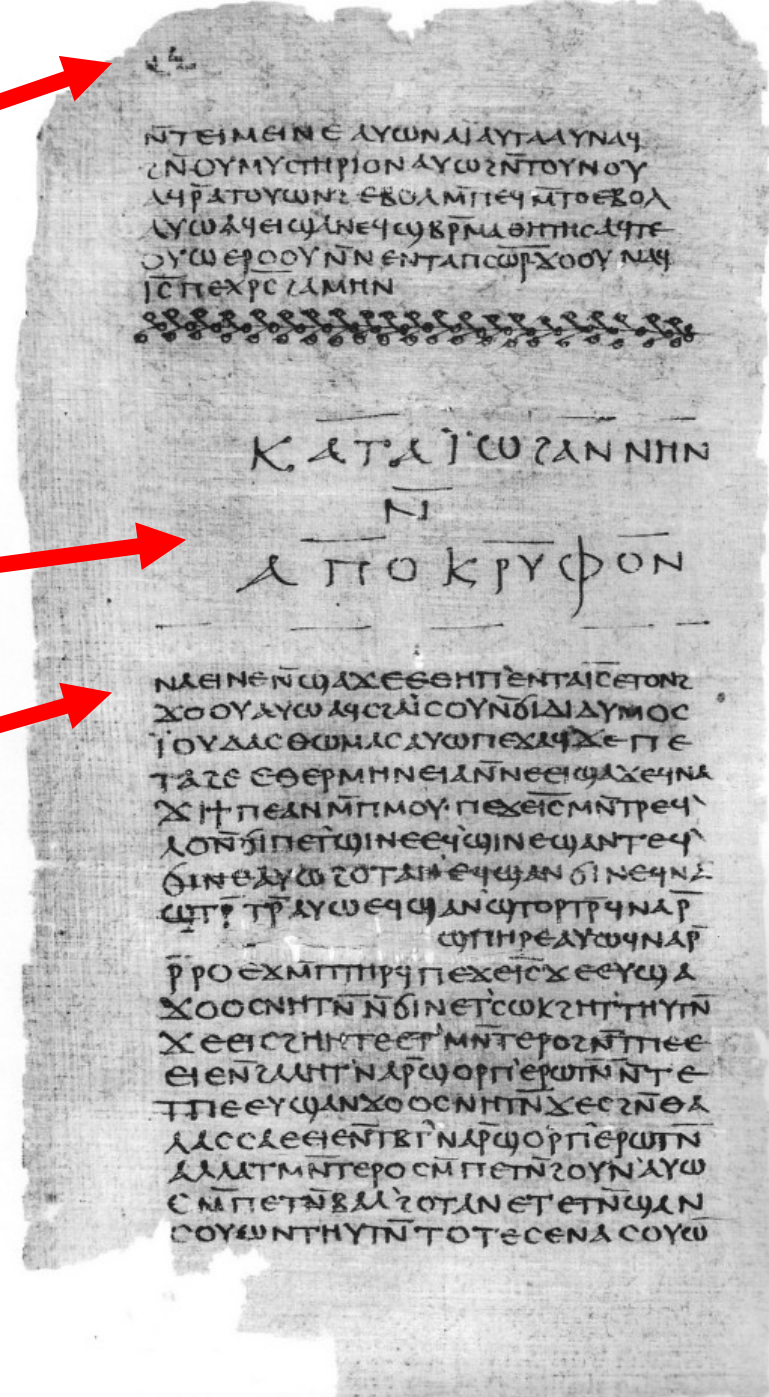 ⲛ̅ⲧⲉⲓⲙⲉⲓⲛⲉ ⲁⲩⲱ ⲛⲁⲓ̈ ⲁⲩⲧⲁⲁⲩ ⲛⲁϥ
ϩⲛ̅ ⲟⲩⲙⲩⲥⲧⲏⲣⲓⲟⲛ ⲁⲩⲱ ϩⲛ̅ ⲧⲟⲩⲛⲟⲩ
ⲁϥⲣ̅ ⲁⲧⲟⲩⲱⲛϩ ⲉⲃⲟⲗ ⲙ̅ⲡⲉϥⲙ̅ⲧⲟ ⲉⲃⲟⲗ
ⲁⲩⲱ ⲁϥⲉⲓ ϣⲁ ⲛⲉϥϣⲃⲣ̅ⲙⲁⲑⲏⲧⲏⲥ ⲁϥⲧⲉ
ⲟⲩⲱ ⲉⲣⲟⲟⲩ ⲛ̅ⲛⲉⲛⲧⲁ ⲡⲥⲱ̅ⲣ̅ ϫⲟⲟⲩ ⲛⲁϥ
ⲓ̅ⲥ̅ ⲡⲉⲭⲣ̅ⲥ̅ ϩⲁⲙⲏⲛ
ⲕⲁⲧⲁ ⲓ̈ⲱϩⲁⲛⲛⲏⲛ
ⲛ̅
ⲁⲡⲟⲕⲣⲩⲫⲟⲛ
ⲛⲁⲉⲓ ⲛⲉ ⲛ̅ϣⲁϫⲉ ⲉⲑⲏⲡ ⲉⲛⲧⲁ ⲓ̅ⲥ̅ ⲉⲧⲟⲛϩ
ϫⲟⲟⲩ ⲁⲩⲱ ⲁϥⲥϩⲁⲓ̈ⲥⲟⲩ ⲛ̅ϭⲓ ⲇⲓⲇⲩⲙⲟⲥ
ⲓ̈ⲟⲩⲇⲁⲥ ⲑⲱⲙⲁⲥ ⲁⲩⲱ ⲡⲉϫⲁϥ ϫⲉ ⲡⲉ
ⲧⲁϩⲉ ⲉⲑⲉⲣⲙⲏⲛⲉⲓⲁ ⲛ̅ⲛⲉⲉⲓϣⲁϫⲉ ϥⲛⲁ
ϫⲓ ϯⲡⲉ ⲁⲛ ⲙ̅ⲡⲙⲟⲩ ⲡⲉϫⲉ ⲓ̅ⲥ̅ ⲙⲛ̅ⲧⲣⲉϥ
ⲗⲟ ⲛ̅ϭⲓ ⲡⲉⲧϣⲓⲛⲉ ⲉϥϣⲓⲛⲉ ϣⲁⲛⲧⲉϥ
ϭⲓⲛⲉ ⲁⲩⲱ ϩⲟⲧⲁⲛ ⲉϥϣⲁⲛϭⲓⲛⲉ ϥⲛⲁ
ϣⲧⲣ̅ⲧⲣ̅ ⲁⲩⲱ ⲉϥϣⲁⲛϣⲧⲟⲣⲧⲣ̅ ϥⲛⲁⲣ̅
ϣⲡⲏⲣⲉ ⲁⲩⲱ ϥⲛⲁⲣ̅
ⲣ̅ⲣⲟ ⲉϫⲙ̅ ⲡⲧⲏⲣϥ ⲡⲉϫⲉ ⲓ̅ⲥ̅ ϫⲉ ⲉⲩϣⲁ
ϫⲟⲟⲥ ⲛⲏⲧⲛ̅ ⲛ̅ϭⲓ ⲛⲉⲧⲥⲱⲕ ϩⲏⲧ ⲧⲏⲩⲧⲛ̅
ϫⲉ ⲉⲓⲥϩⲏⲏⲧⲉ ⲉⲧⲙⲛ̅ⲧⲉⲣⲟ ϩⲛ̅ ⲧⲡⲉ ⲉ
ⲉⲓⲉ ⲛ̅ϩⲁⲗⲏⲧ ⲛⲁⲣ̅ ϣⲟⲣⲡ ⲉⲣⲱⲧⲛ̅ ⲛ̅ⲧⲉ
ⲧⲡⲉ ⲉⲩϣⲁⲛϫⲟⲟⲥ ⲛⲏⲧⲛ̅ ϫⲉ ⲥϩⲛ̅ ⲑⲁ
ⲗⲁⲥⲥⲁ ⲉⲉⲓⲉ ⲛ̅ⲧⲃⲧ ⲛⲁⲣ̅ ϣⲟⲣⲡ ⲉⲣⲱⲧⲛ̅
ⲁⲗⲗⲁ ⲧⲙⲛ̅ⲧⲉⲣⲟ ⲥⲙ̅ⲡⲉⲧⲛ̅ϩⲟⲩⲛ ⲁⲩⲱ
ⲥⲙ̅ⲡⲉⲧⲛ̅ⲃⲁⲗ ϩⲟⲧⲁⲛ ⲉⲧⲉⲧⲛ̅ϣⲁⲛ
ⲥⲟⲩⲱⲛ ⲧⲏⲩⲧⲛ̅ ⲧⲟⲧⲉ ⲥⲉⲛⲁⲥⲟⲩⲱ